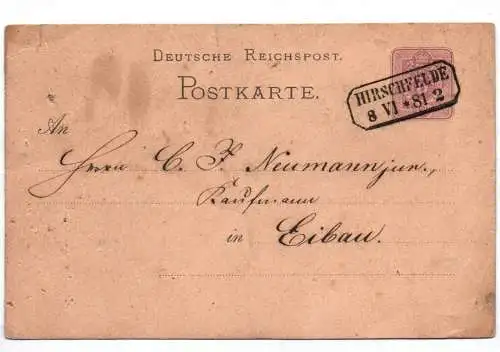 DEUTSCHE REICHSPOST.
POSTKARTE.
HIRSCHFELDE
8 VI * 81 2
An
Herrn C. F. Neumann jun.,
Kaufmann
in Eibau.